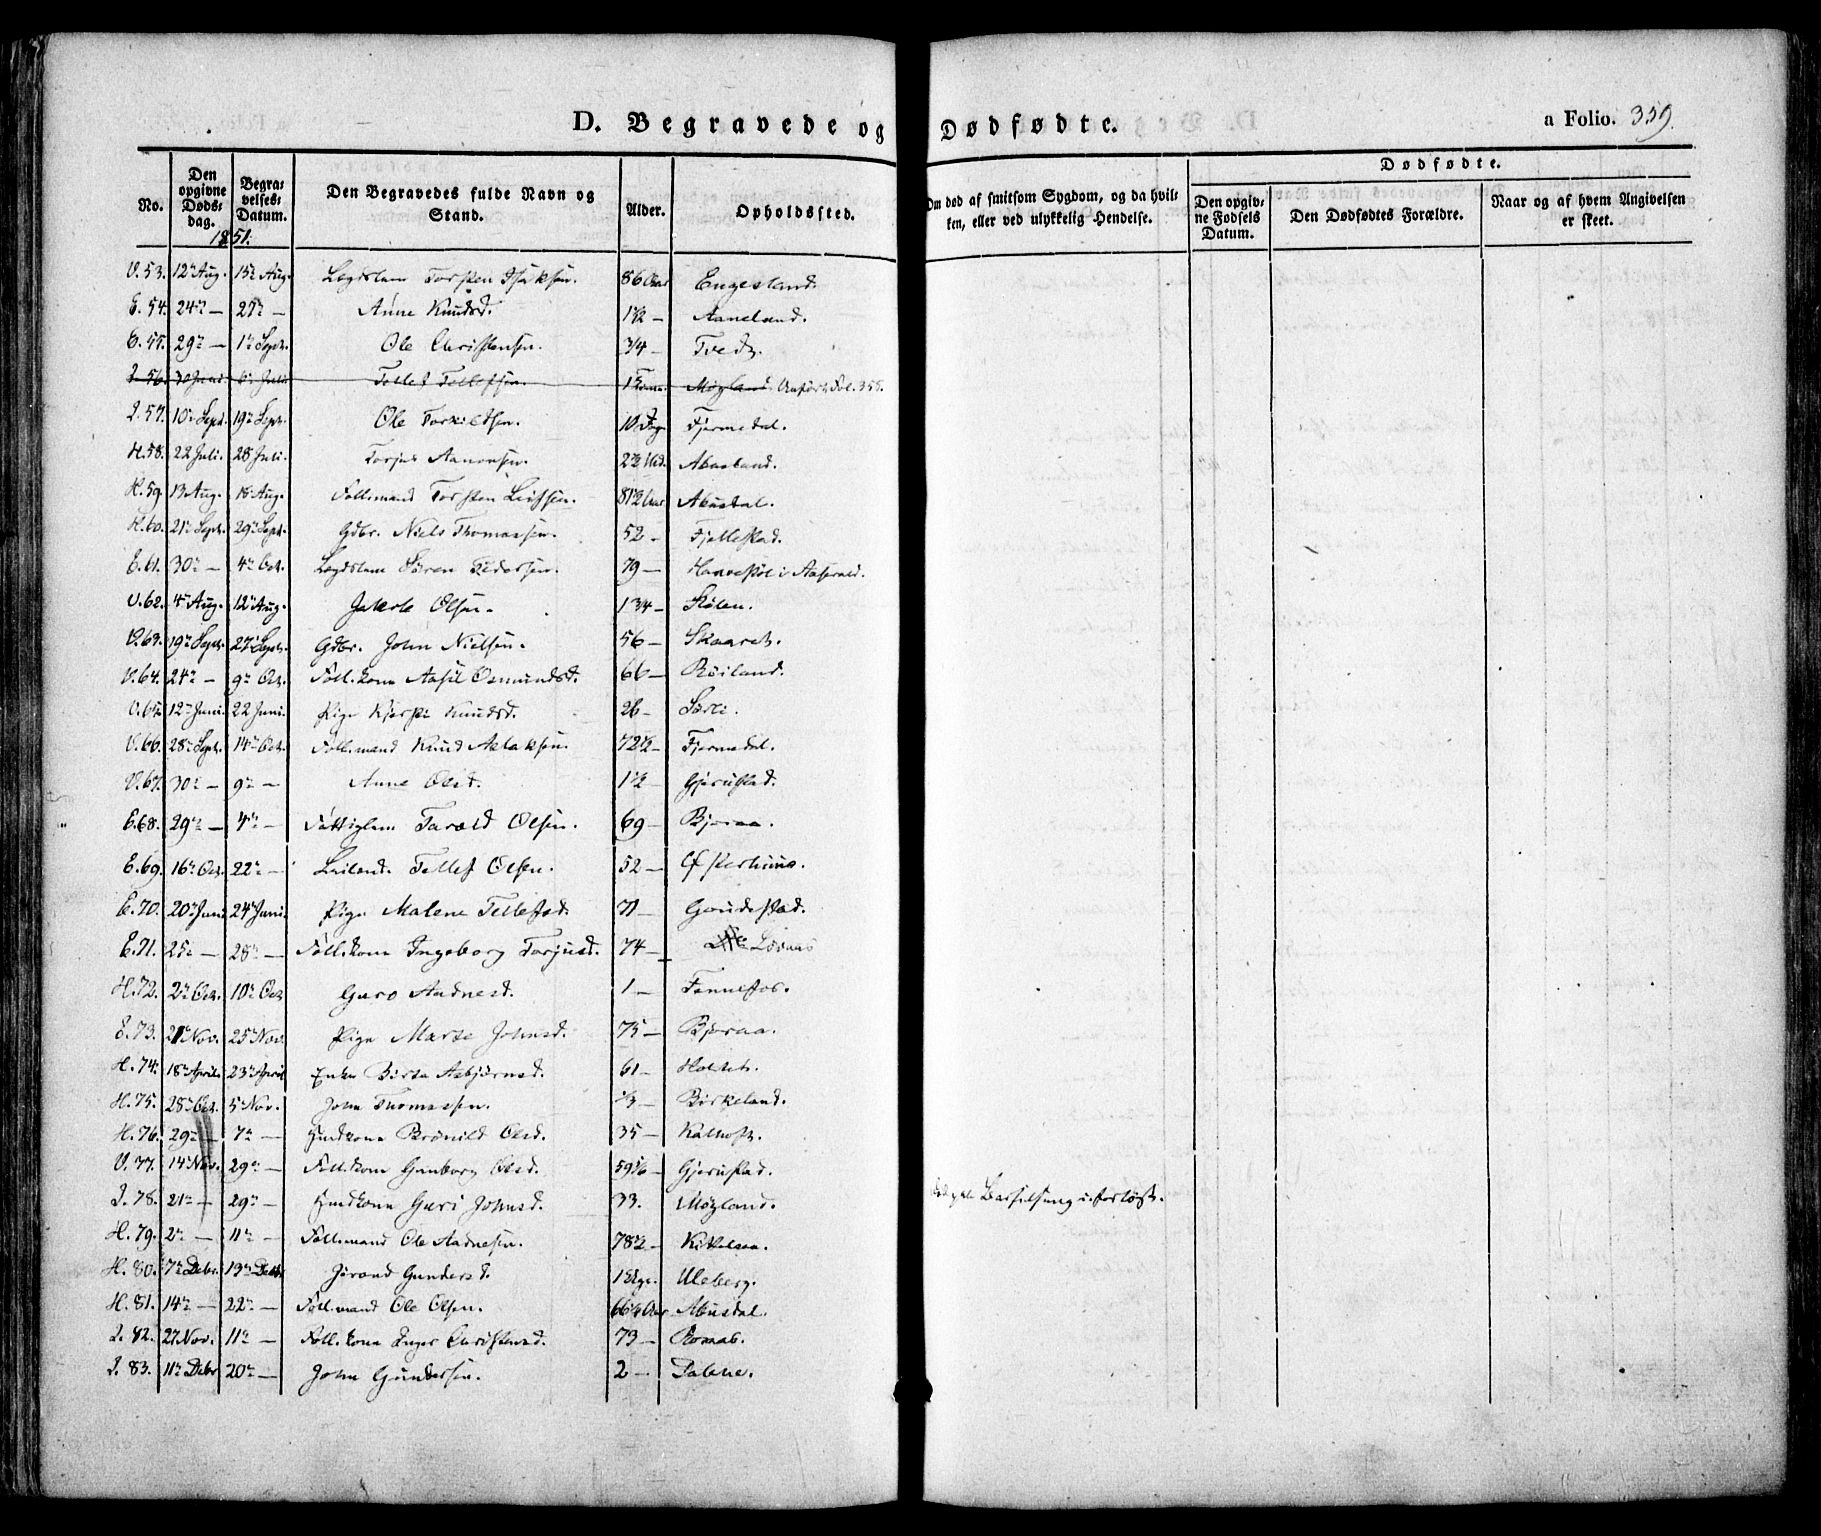 D. Begravede og Dødfødte.
a Folio. 359.
No.
Den opgivne Døds-dag.
Begra-velses-Datum.
Den Begravedes fulde Navn og Stand.
Alder.
Opholdssted.
Om død af smitsom Sygdom, og da hvil-ken, eller ved ulykkelig Hendelse.
Dødfødte.
Den opgiv-ne Fødsels Datum.
Den Dødfødtes Forældre.
Naar og af hvem Angivelsen er skeet.
1851.
V. 53. 12te Aug. 15de Aug. Lægdslem Torsten Isaksen. 86 Aar Engesland.
E. 54. 24de — 27de — Anne Knudsd. 1½ — Aaneland.
E. 55. 29de — 1te Septr. Ole Christensen. 3/4 — Tvedt.
I. 56. 30 Juni 6te Juli Tollef Tollefsen. Møgland Anført Fol. 355.
I. 57. 10de Septr. 19de Septr. Ole Torkildsen. 10 Dage Fjermedal.
H. 58. 22 Juli. 28 Juli. Torjus Aanonsen. 2½ Md. Abusland.
H. 59. 13 Aug. 18 Aug. Follemand Torsten Leifsen. 81½ Aar Abusdal.
H. 60. 21de Septr. 29de Septr. Gdbr. Niels Thomassen. 52 — Fjellestad.
E. 61. 30te — 4de Oct. Lægdslem Sören Pedersen. 79 — i Aaserald.
V. 62. 4de Aug. 12te Aug. Jakob Olsen. 1 3/4 — Stølen.
V. 63. 19de Septr. 27de Septr. Gdbr. John Nielsen. 56 — Skaaret.
V. 64. 24de — 9de Oct. Foll.kone Aasil Osmundsd. 66 — Røiland.
V. 65. 12te Juni. 22 Juni. Pige Kjersti Knudsd. 26 — Særli.
V. 66. 28de Septr. 14de Oct. Follemand Knud Aslaksen. 72½ — Fjermedal.
V. 67. 30te — 9de — Anne Olsd. 1½ Gjerustad.
E. 68. 29de — 4de — Fattiglem Tarald Olsen. 69 — Bjoraa.
E. 69. 16de Oct. 22de — Leilend. Tollef Olsen. 52 —
E. 70. 20de Juni 24de Juni. Pige Malene Tellefsd. 71 — Goudestad.
E. 71. 25de — 28de — Foll.kone Ingeborg Torjusd. 74 — Løvnæs
H. 72. 2den Oct. 10de Oct. Guro Aadnesd. 1 — Tønnefos.
E. 73. 21de Nov. 25de Nov. Pige Marte Johnsd. 75 — Bjoraa.
H. 74. 18de April 23de April Enke Birte Asbjørnsd. 61 —
H. 75. 28de Oct. 5te Nov. John Thomassen. 1/3 — Birkeland.
H. 76. 29de — 7de — Huuskone Brønild Olsd. 35 — Kalhoft.
V. 77. 14de Nov. 29de — Foll.kone Gunborg Olsd. 59 5/6 — Gjerustad.
I. 78. 21de — 29de — Huuskone Guri Johnsd. 33. Møgland. Barselseng uforløst.
H. 79. 2den — 11te — Follemand Ole Aadnesen. 78½ — Kittelsaa.
H. 80. 7de Debr. 13de Debr. Jørand Gundersd. 1 Uge. Uleberg.
H. 81. 14de — 22de — Follemand Ole Olsen. 66¼ Aar Abusdal.
I. 82. 27. Nov. 11te — Foll.kone Inger Christensd. 73 — Romas.
I. 83. 11te Debr 20de — John Gundersen. 2 — Dalene.